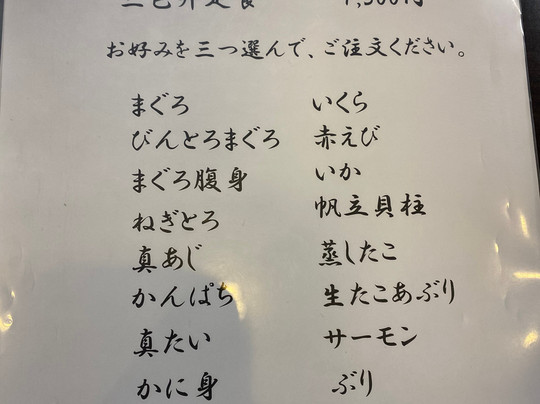 三色丼定食 1,500円
お好みを三つ選んで、ご注文ください。
まぐろ
びんとろまぐろ
まぐろ腹身
ねぎとろ
真あじ
かんぱち
真たい
かに身
いくら
赤えび
いか
帆立貝柱
蒸したこ
生たこあぶり
サーモン
ぶり